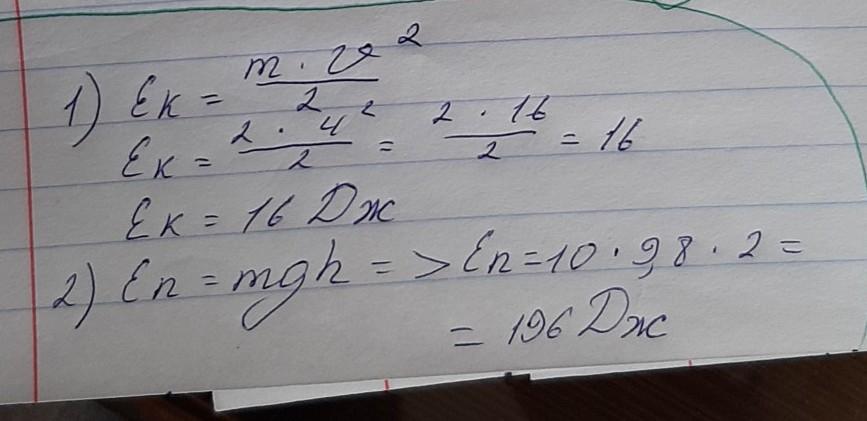 1) Eк = m · v² / 2
Eк = 2 · 4² / 2 = 2 · 16 / 2 = 16
Eк = 16 Дж
2) Eп = mgh => Eп = 10 · 9,8 · 2 =
= 196 Дж